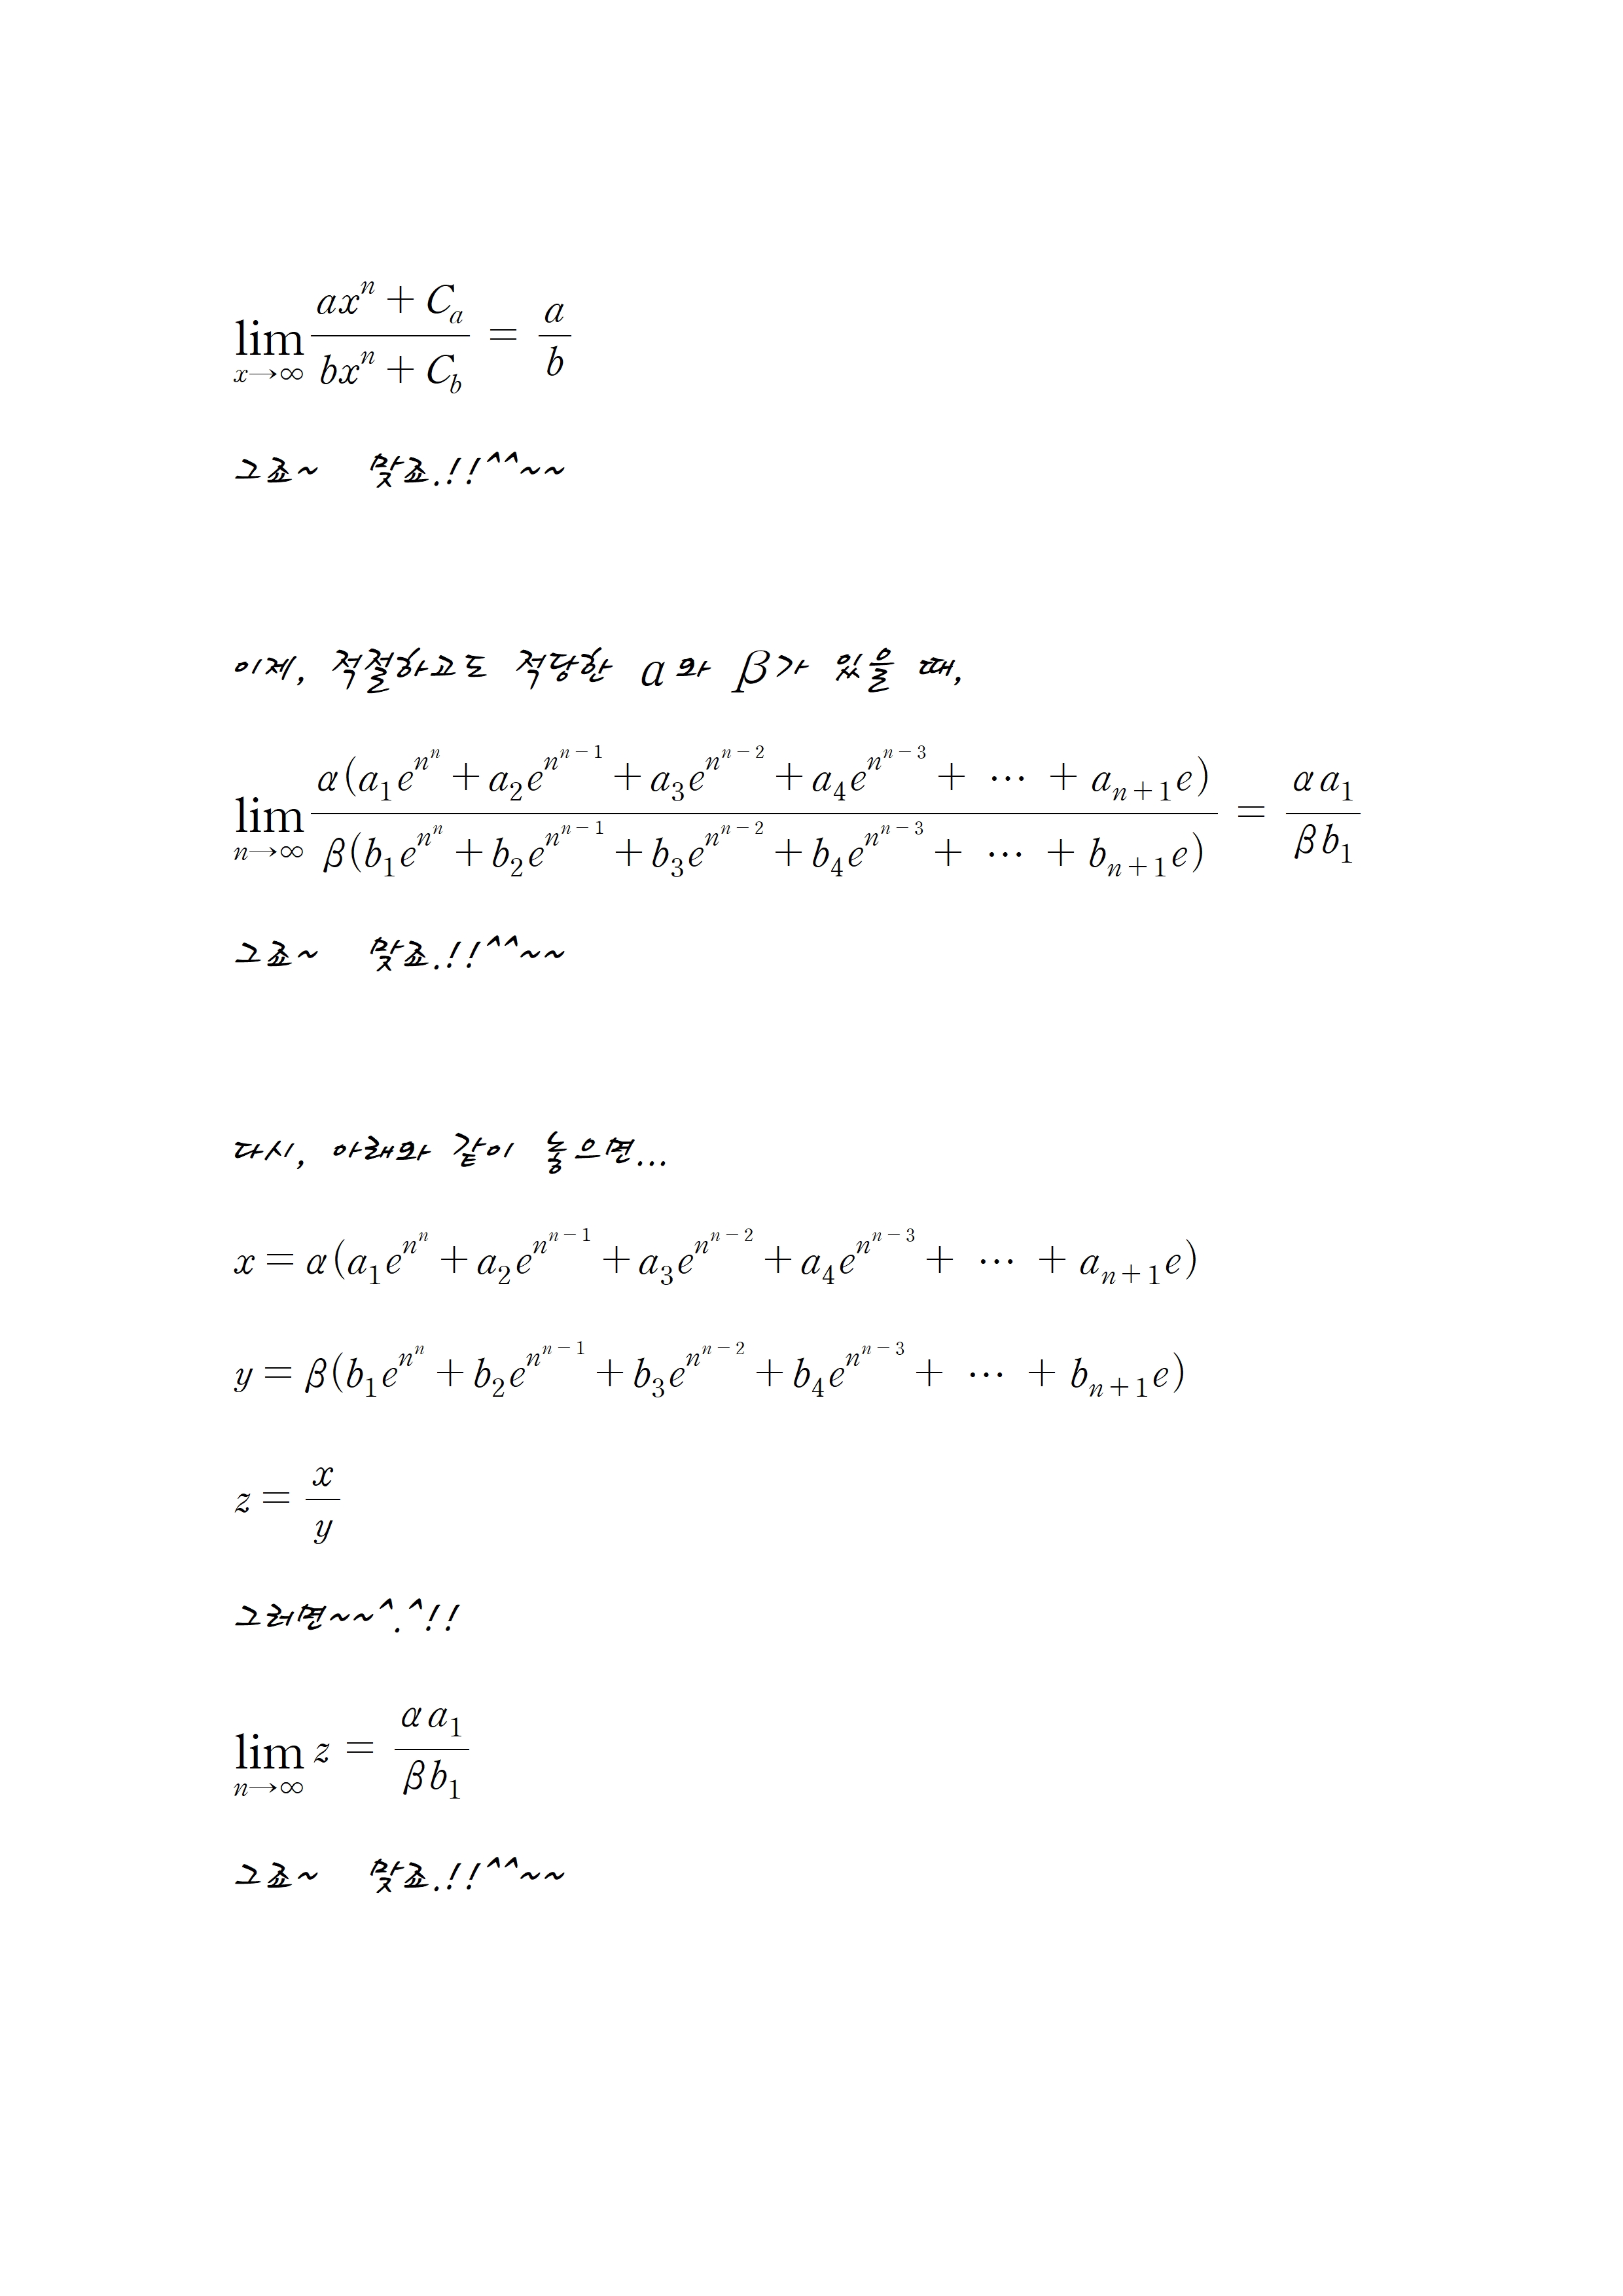 $\lim_{x \to \infty} \frac{ax^n + C_a}{bx^n + C_b} = \frac{a}{b}$
그죠~ 맞죠.!!^^~~
이제, 적절하고도 적당한 α와 β가 있을 때,
$\lim_{n \to \infty} \frac{α(a_1e^{n^n} + a_2e^{n^{n-1}} + a_3e^{n^{n-2}} + a_4e^{n^{n-3}} + \cdots + a_{n+1}e)}{β(b_1e^{n^n} + b_2e^{n^{n-1}} + b_3e^{n^{n-2}} + b_4e^{n^{n-3}} + \cdots + b_{n+1}e)} = \frac{αa_1}{βb_1}$
그죠~ 맞죠.!!^^~~
다시, 아래와 같이 놓으면...
$x = α(a_1e^{n^n} + a_2e^{n^{n-1}} + a_3e^{n^{n-2}} + a_4e^{n^{n-3}} + \cdots + a_{n+1}e)$
$y = β(b_1e^{n^n} + b_2e^{n^{n-1}} + b_3e^{n^{n-2}} + b_4e^{n^{n-3}} + \cdots + b_{n+1}e)$
$z = \frac{x}{y}$
그러면~~^.^!!
$\lim_{n \to \infty} z = \frac{αa_1}{βb_1}$
그죠~ 맞죠.!!^^~~